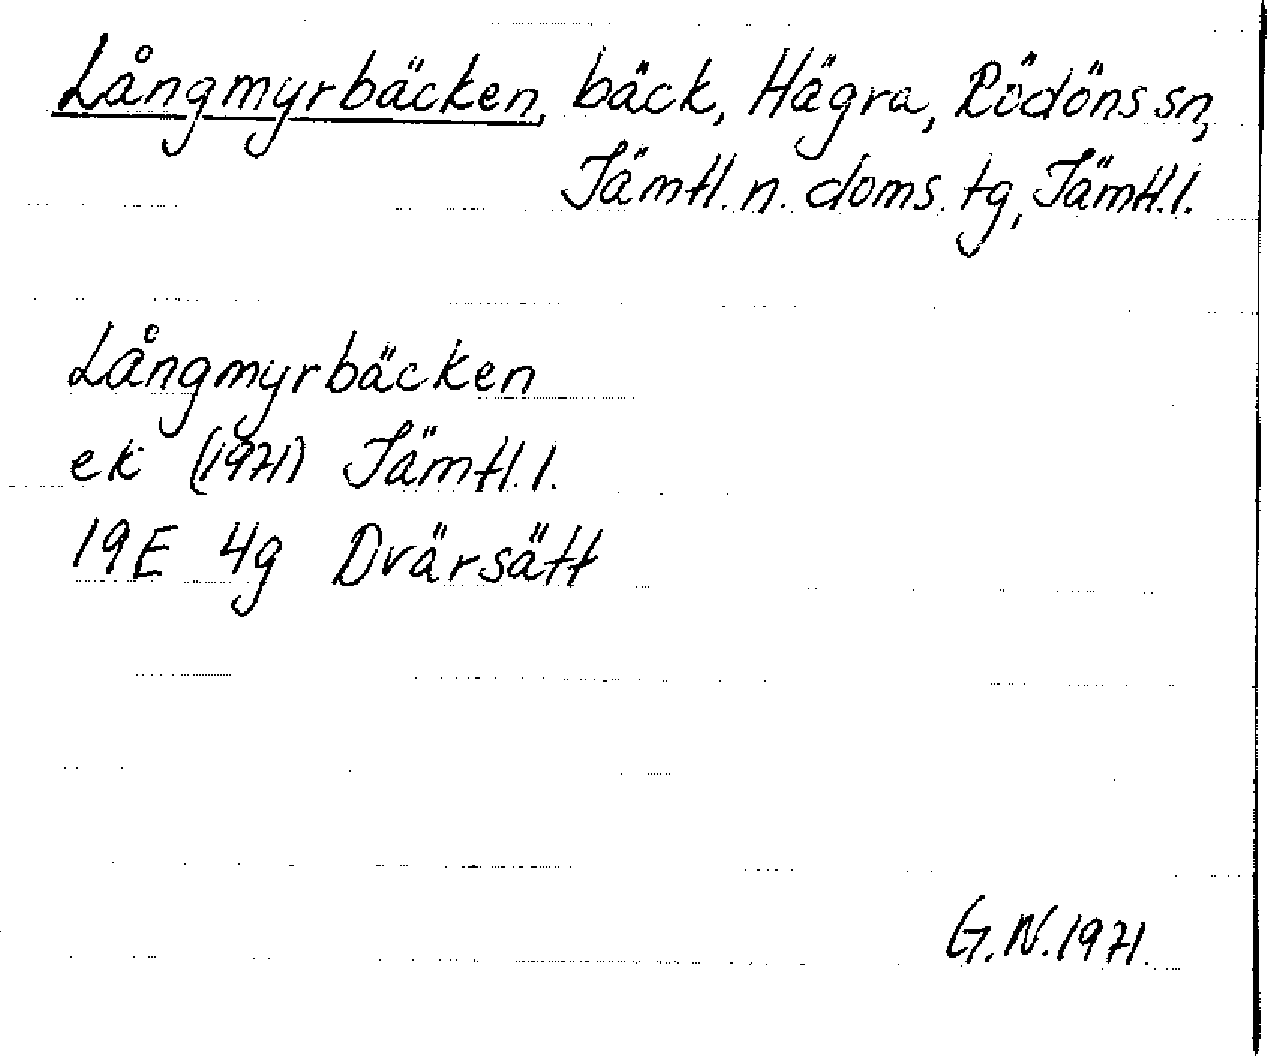 Långmyrbäcken, bäck, Hägra, Rödöns sn,
Jämtl. n. doms. tg, Jämtl. l.
Långmyrbäcken
ek (1971) Jämtl. l.
19E 4g Dvärsätt
G.N. 1971.